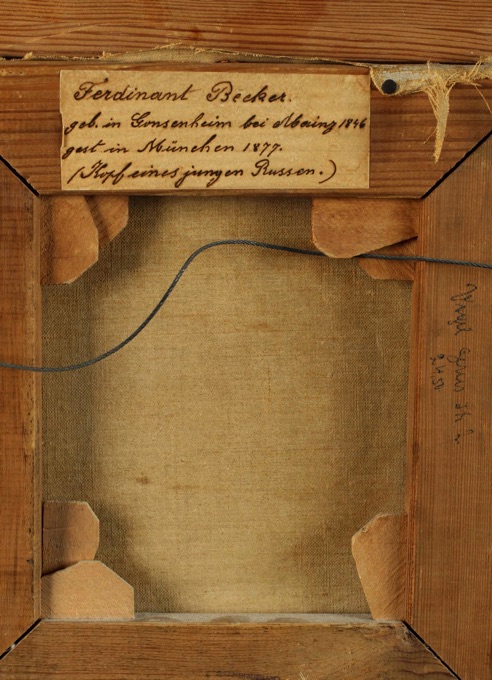 Ferdinant Becker.
geb. in Gonsenheim bei Mainz 1846
gest in München 1877.
(Kopf eines jungen Russen.)